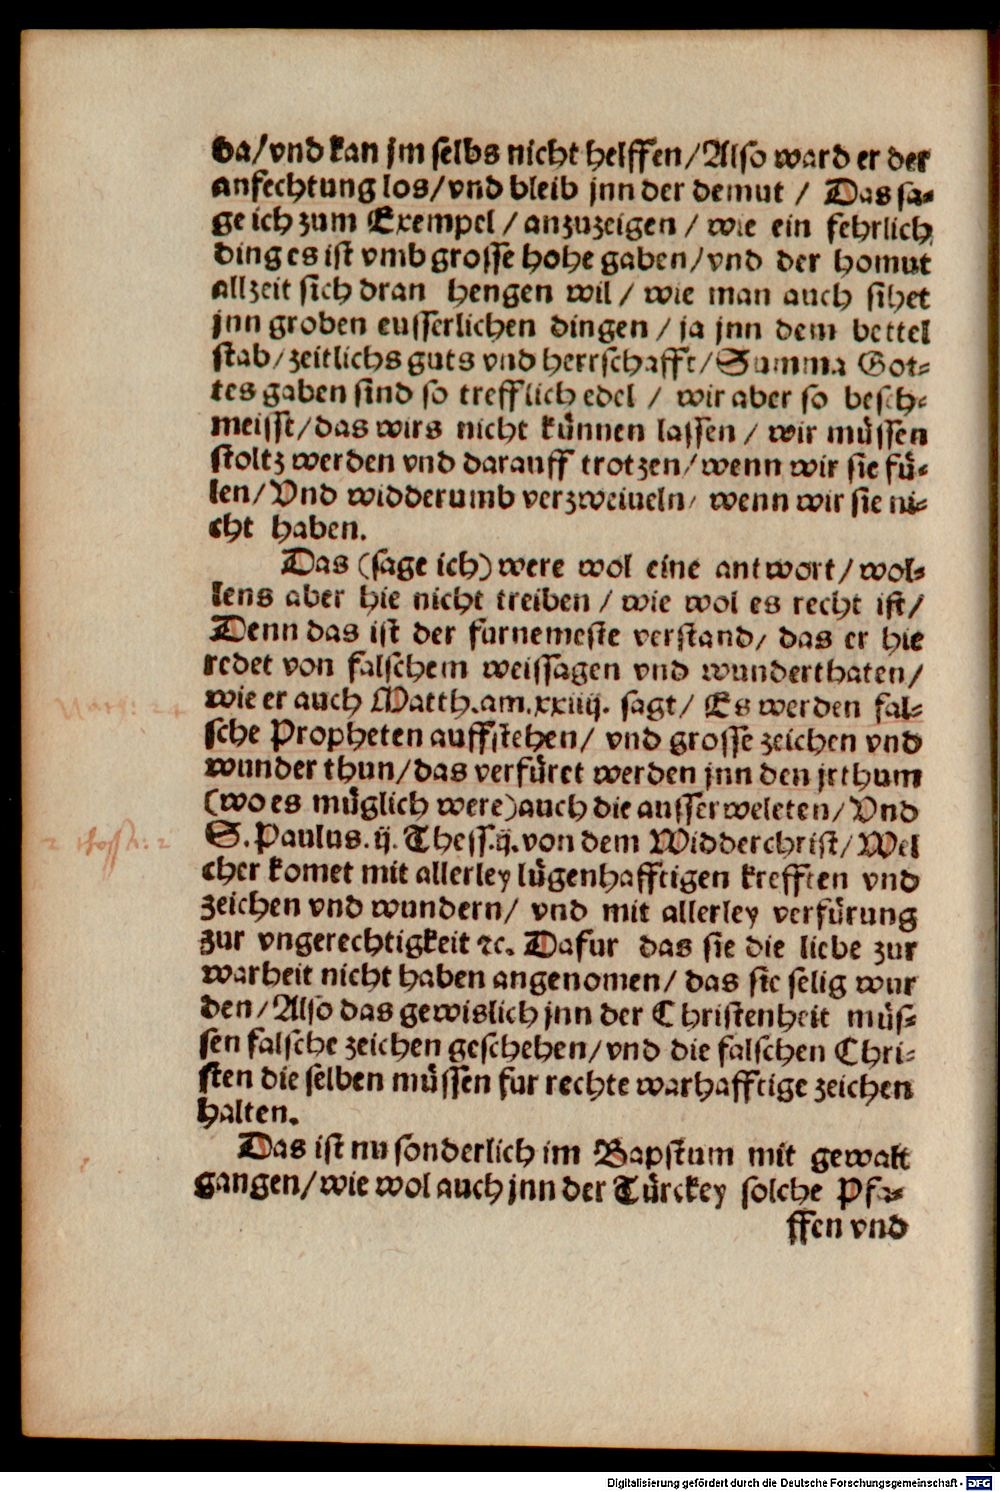 da/vnd kan jm selbs nicht helffen/Also ward er der
anfechtung los/vnd bleib jnn der demut / Das sa-
ge ich zum Exempel / anzuzeigen / wie ein fehrlich
ding es ist vmb grosse hohe gaben/vnd der homut
allzeit sich dran hengen wil / wie man auch sihet
jnn groben eusserlichen dingen / ja jnn dem bettel
stab/zeitlichs guts vnd herrschafft/Summa Got-
tes gaben sind so trefflich edel / wir aber so besch-
meisst/das wirs nicht künnen lassen / wir müssen
stoltz werden vnd darauff trotzen/wenn wir sie fü-
len/Vnd widderumb verzweiueln/ wenn wir sie ni-
cht haben.
Das (sage ich) were wol eine antwort/wol-
lens aber hie nicht treiben / wie wol es recht ist/
Denn das ist der furnemeste verstand/ das er hie
redet von falschem weissagen vnd wunderthaten/
wie er auch Matth.am.xxiiij. sagt/ Es werden fal-
sche Propheten auffstehen/ vnd grosse zeichen vnd
wunder thun/das verfüret werden jnn den jrthum
(wo es müglich were)auch die ausserweleten/Vnd
S. Paulus.ij.Thess.ij.von dem Widderchrist/Wel
cher komet mit allerley lügenhafftigen krefften vnd
zeichen vnd wundern/ vnd mit allerley verfürung
zur vngerechtigkeit ꝛc. Dafur das sie die liebe zur
warheit nicht haben angenomen/ das sie selig wur
den/Also das gewislich jnn der Christenheit müs-
sen falsche zeichen geschehen/vnd die falschen Chri-
sten die selben müssen fur rechte warhafftige zeichen
halten.
Das ist nu sonderlich im Bapstum mit gewalt
gangen/wie wol auch jnn der Türckey solche Pfa-
ffen vnd
Matth: 24
2 Thess: 2
Digitalisierung gefördert durch die Deutsche Forschungsgemeinschaft - DFG